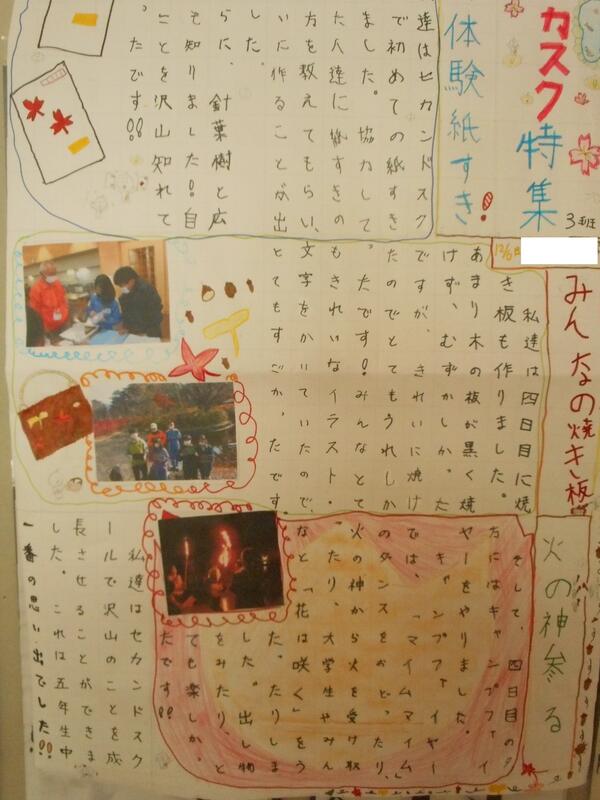 カスク特集
3班
体験紙すき!
達はセカンドスク
で初めての紙すき
ました。協力して、
た人達に紙すきの
方を教えてもらい、
いに作ることが出
した。
らに、針葉樹と広
も知りました!自
ことを沢山知れて
ったです!!
12/6
みんなの焼き板
私達は四日目に焼
き板も作りました。
あまり木の板が黒く焼
けず、むずかしかった
ですが、きれいに焼け
たのでとてもうれしか
ったです!みんなとて
もきれいなイラスト・
文字をかいていたので、
とてもすごかったです。
火の神参る
そして、四日目の夕
方にはキャンプファイ
ヤーをやりました。
キャンプファイヤー
では、「マイムマイム」
のダンスをおどったり、
火の神から火を受け取
ったり、大学生やみん
なと「花は咲く」をう
たったりしま
した。出し物
をみたり、と
ても楽しかっ
たです!!
私達はセカンドスク
ールで沢山のことを成
長させることができま
した。これは五年生中
一番の思い出でした!!